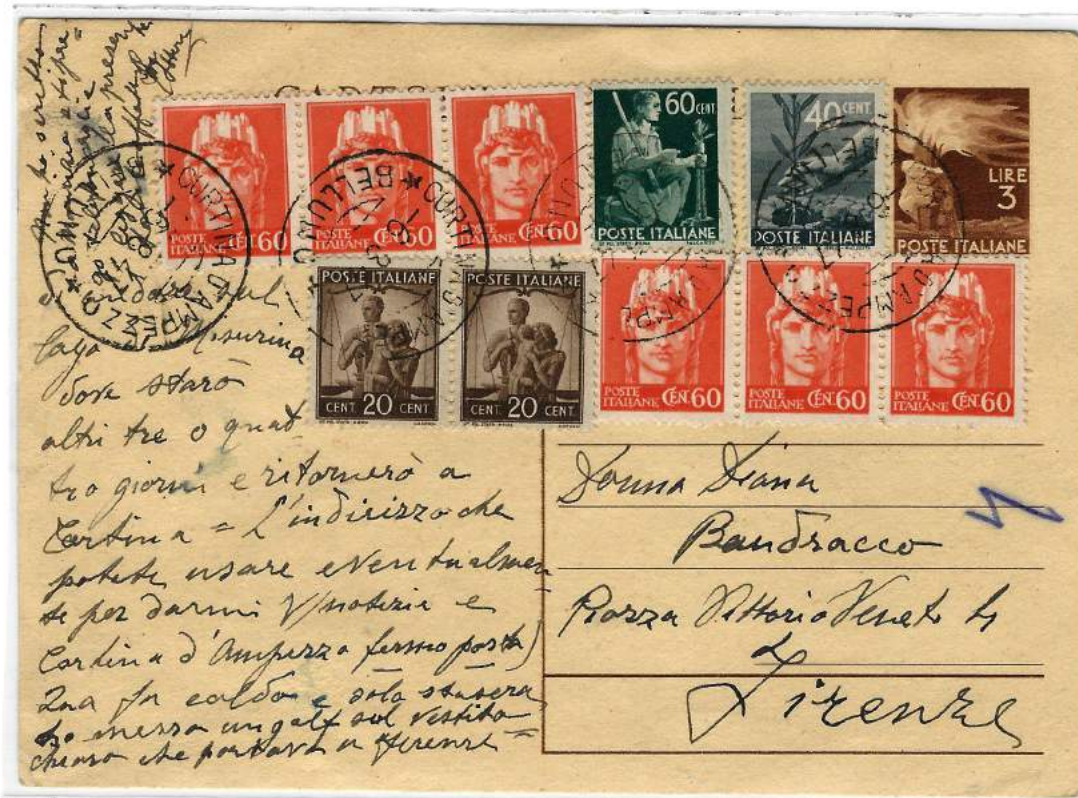 POSTE ITALIANE CEN. 60
POSTE ITALIANE CEN. 60
POSTE ITALIANE CEN. 60
60 CENT
POSTE ITALIANE
40 CENT
POSTE ITALIANE
LIRE
3
POSTE ITALIANE
POSTE ITALIANE
CENT. 20 CENT
POSTE ITALIANE
CENT. 20 CENT
POSTE ITALIANE CEN. 60
POSTE ITALIANE CEN. 60
POSTE ITALIANE CEN. 60
CORTINA D'AMPEZZO
BELLUNO
sul
lago Misurina
dove starò
altri tre o quat
tro giorni e ritornerò a
Cortina = L'indirizzo che
potete usare eventualmen
te per darmi V/notizie e
Cortina d'Ampezzo fermo posta)
Qua fa caldo e solo stasera
ho messo un golf sul vestito
chiaro che portavo a Firenze =
Donna Diana
Bandracco
Piazza Vittorio Veneto 4
Firenze